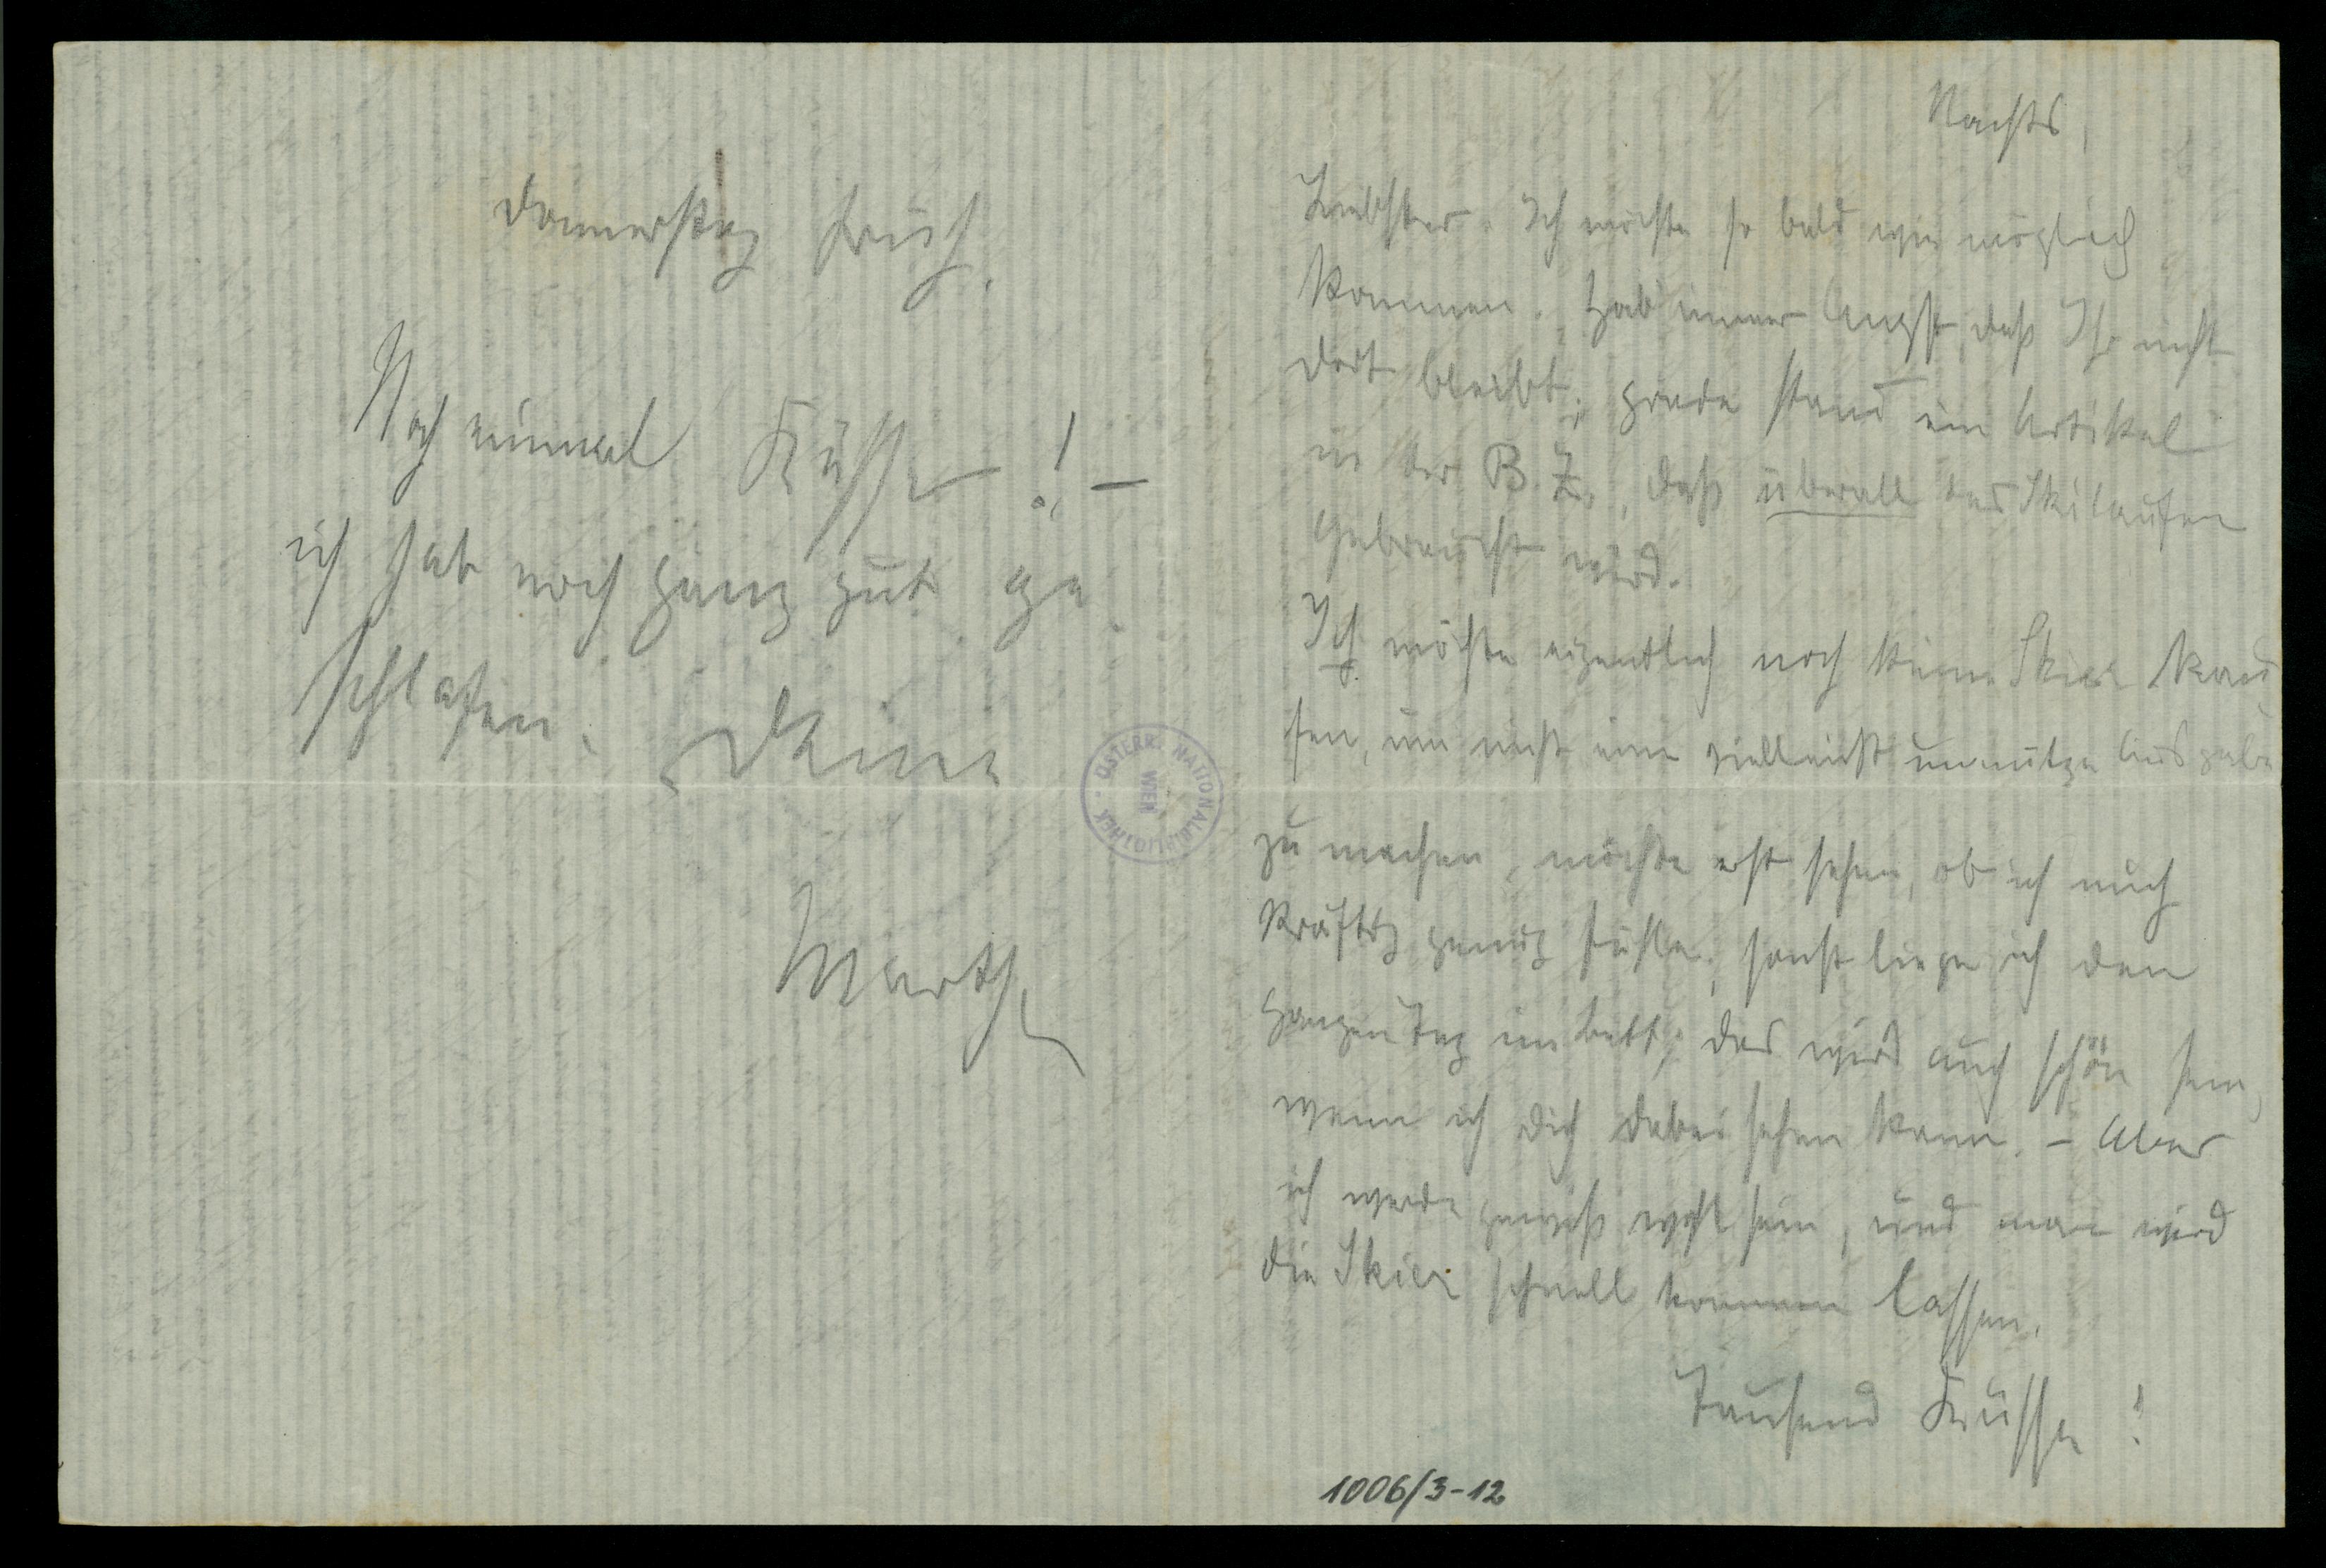 Nachts,
Liebster. Ich möchte so bald wie möglich
kommen. Hab immer Angst, daß Ihr nicht
dort bleibt; grade stand ein Artikel
in der B. Z., daß überall das Skilaufen
gebraucht wird.
Ich möchte eigentlich noch keine Skier kau
fen, um nicht eine vielleicht unnütze Ausgabe
zu machen, möchte erst sehen, ob ich mich
kräftig genug fühle; sonst liege ich den
ganzen Tag im Bett; das wird auch schön sein,
wenn ich Dich dabei sehen kann. – Aber
ich werde gewiss wohl sein, und man wird
die Skier schnell kommen lassen.
Tausend Küsse!
1006/3-12
Donnerstag früh,
Noch einmal Küsse! –
ich hab noch ganz gut ge
schlafen. Deine
Martha
ÖSTERR. NATIONALBIBLIOTHEK
WIEN